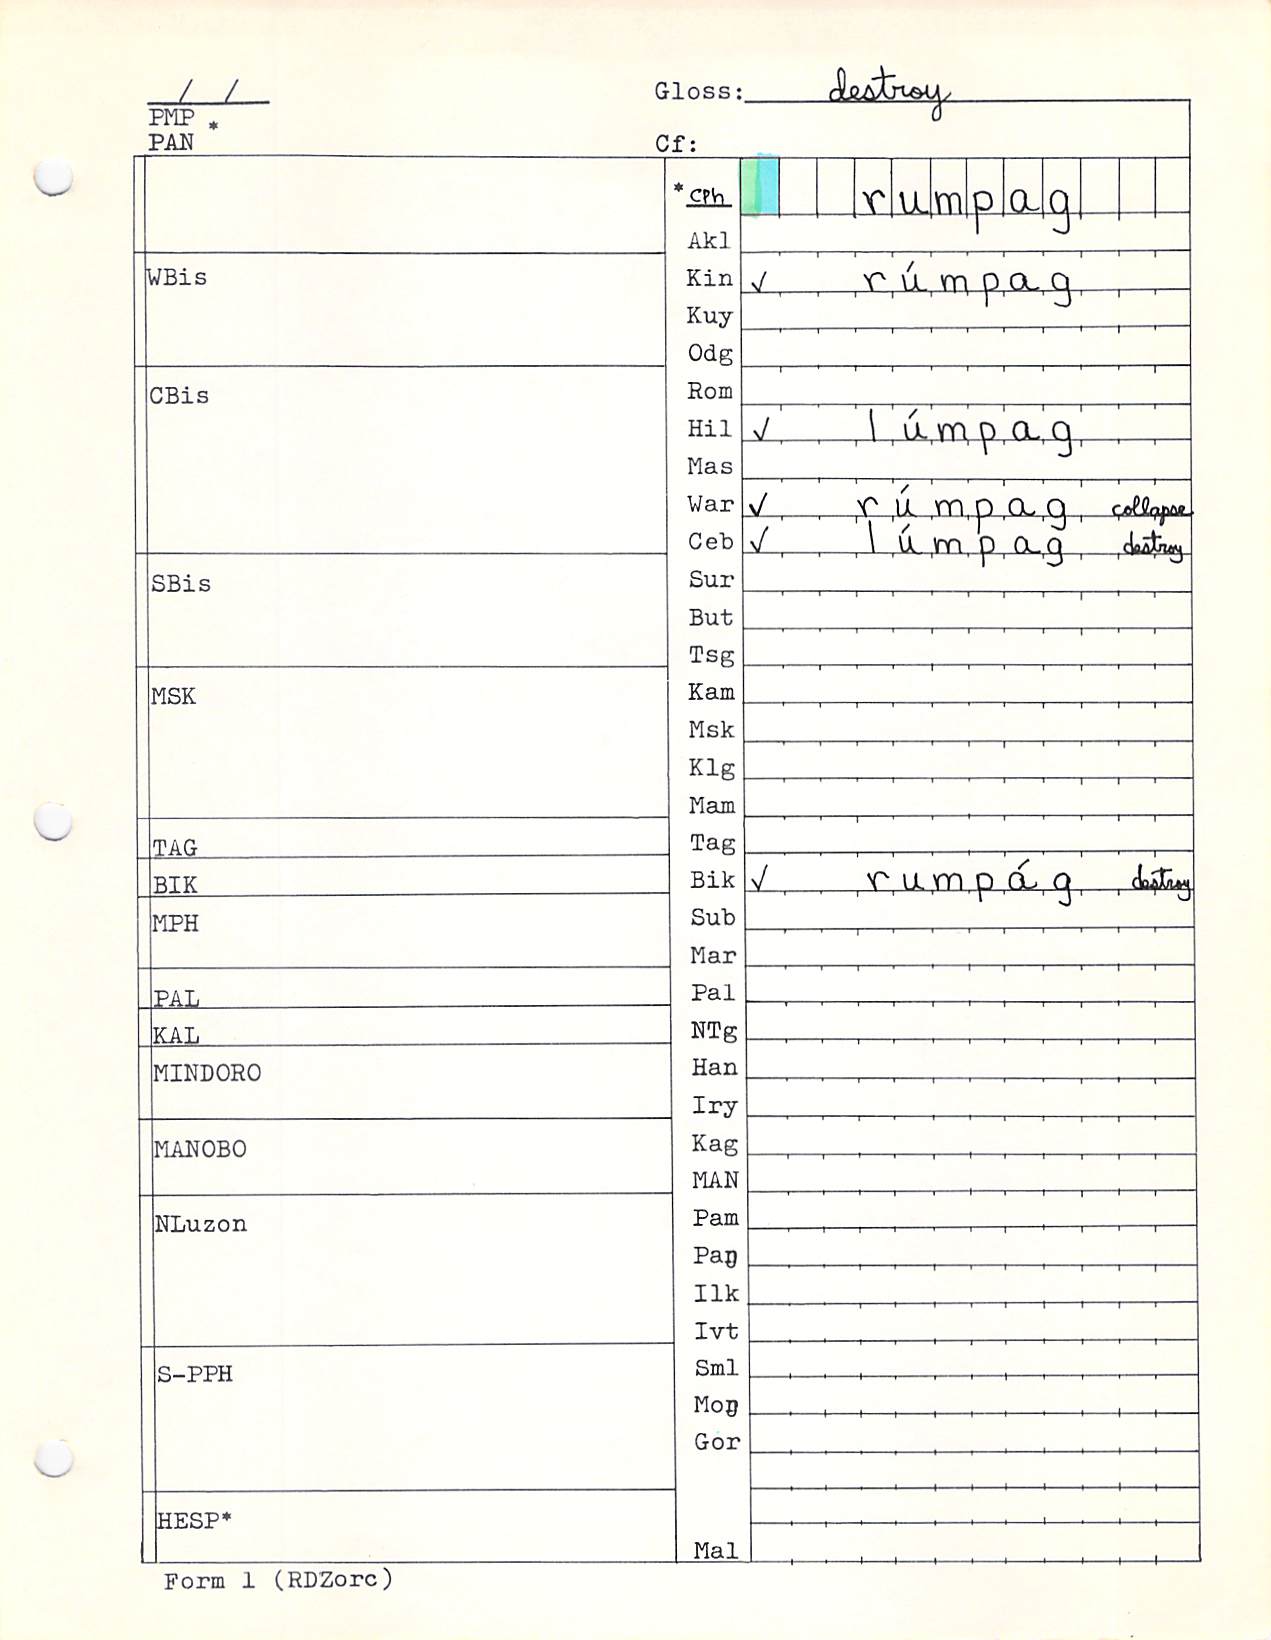 / /
Gloss: destroy
PMP *
PAN
Cf:
*cph rumpag
Akl
WBis
Kin ✓ rúmpag
Kuy
Odg
CBis
Rom
Hil ✓ lúmpag
Mas
War ✓ rúmpag collapse
Ceb ✓ lúmpag destroy
SBis
Sur
But
Tsg
MSK
Kam
Msk
Klg
Mam
TAG
Tag
BIK
Bik ✓ rumpág destroy
MPH
Sub
Mar
PAL
Pal
KAL
NTg
MINDORO
Han
Iry
MANOBO
Kag
MAN
NLuzon
Pam
Paŋ
Ilk
Ivt
S-PPH
Sml
Moŋ
Gor
HESP*
Mal
Form 1 (RDZorc)